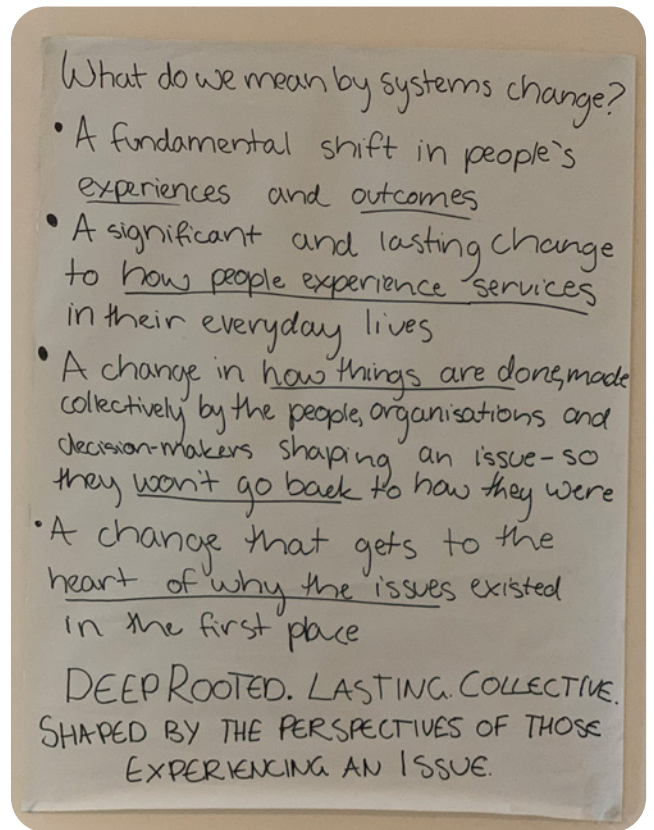 What do we mean by systems change?
• A fundamental shift in people's
experiences and outcomes
• A significant and lasting change
to how people experience services
in their everyday lives
• A change in how things are done, made
collectively by the people, organisations and
decision-makers shaping an issue - so
they won't go back to how they were
• A change that gets to the
heart of why the issues existed
in the first place
DEEP ROOTED. LASTING. COLLECTIVE.
SHAPED BY THE PERSPECTIVES OF THOSE
EXPERIENCING AN ISSUE.